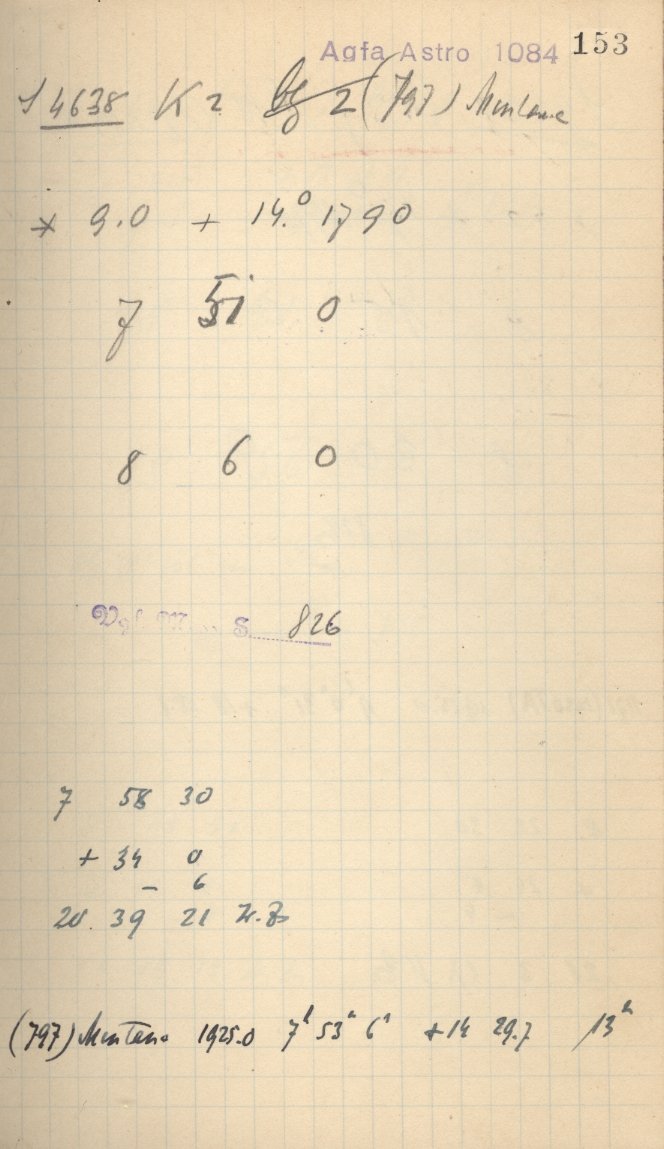 Agfa Astro 1084 153
S 4638 K 2 2 (797) Montana
* 9.0 + 14.° 1790
7 51 0
8 6 0
Vgl. S. 826
7 58 30
+ 34 0
- 6
20. 39 21
(797) Montana 1925.0 7ʰ 53ᵐ 6ˢ +14 29.7 13ʰ